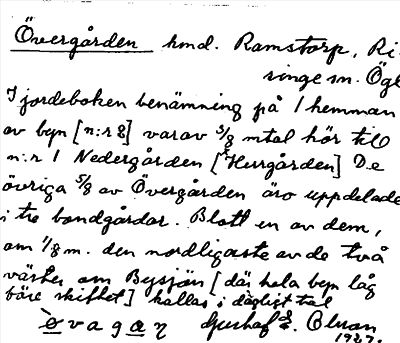 Övergården hmd. Ramstorp, Ri-
singe sn. Ögl
I jordeboken benämning på 1 hemman
av byn [n:r 2] varav 3/8 mtal hör till
n:r 1 Nedergården [Herrgården] De
övriga 5/8 av Övergården äro uppdelade
i tre bondgårdar. Blott en av dem,
om 1/8 m. den nordligaste av de två
väster om Bysjön [där hela byn låg
före skiftet] kallas i dagligt tal
Olsson
1927.